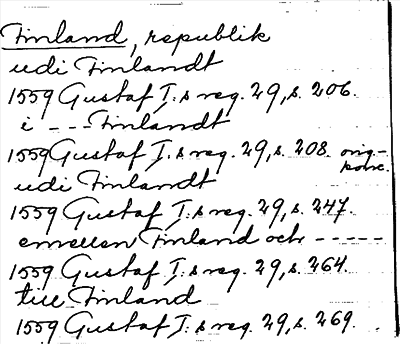 Finland, republik
udi Finlandt
1559 Gustaf I:s reg. 29, s. 206.
i --- Finlandt
1559 Gustaf I:s reg. 29, s. 208. orig-
konc.
udi Finlandt
1559 Gustaf I:s reg. 29, s. 247.
emellen Finland och -----
1559 Gustaf I:s reg. 29, s. 264.
till Finland
1559 Gustaf I:s reg. 29, s. 269.